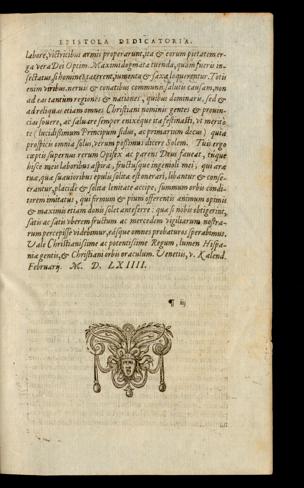 EPISTOLA DEDICATORIA.
labore, victricibus armis properarunt, ita & eorum pietatem er-
ga vera Dei Optim. Maximi dogmata tuenda, quàm fueris in-
sectatus, si homines tacerent, iumenta & saxa loquerentur. Totis
enim viribus, neruis & conatibus communis salutis causam, non
ad eas tantum regiones & nationes, quibus dominaris, sed &
ad reliquas etiam omnes Christiani nominis gentes & prouin-
cias fouere, ac saluare semper enixeque ita festinasti, vt merito
te (lucidissimum Principum sidus, ac primarium decus) quia
prospicis omnia solus, verum possimus dicere Solem. Tuis ergo
cœptis supremus rerum Opifex ac parens Deus faueat, tuque
hisce meis laboribus aspira, fructusque ingenioli mei, qui ara
tua, quæ suauioribus epulis solita est onerari, libantur & conse-
crantur, placide & solita lenitate accipe, summum orbis condi-
torem imitatus, qui firmum & pium offerentis animum opimis
& maximis etiam donis solet anteferre. qua si nobis obtigerint,
satis ac satis vberem fructum ac mercedem vigiliarum nostra-
rum percepisse videbimur, easque omnes probaturos sperabimus.
Vale Christianissime ac potentissime Regum, lumen Hispa-
niæ gentis, & Christiani orbis oraculum. Venetiis, v. Kalend.
Februarij. M. D. LXIIII.
¶ iij